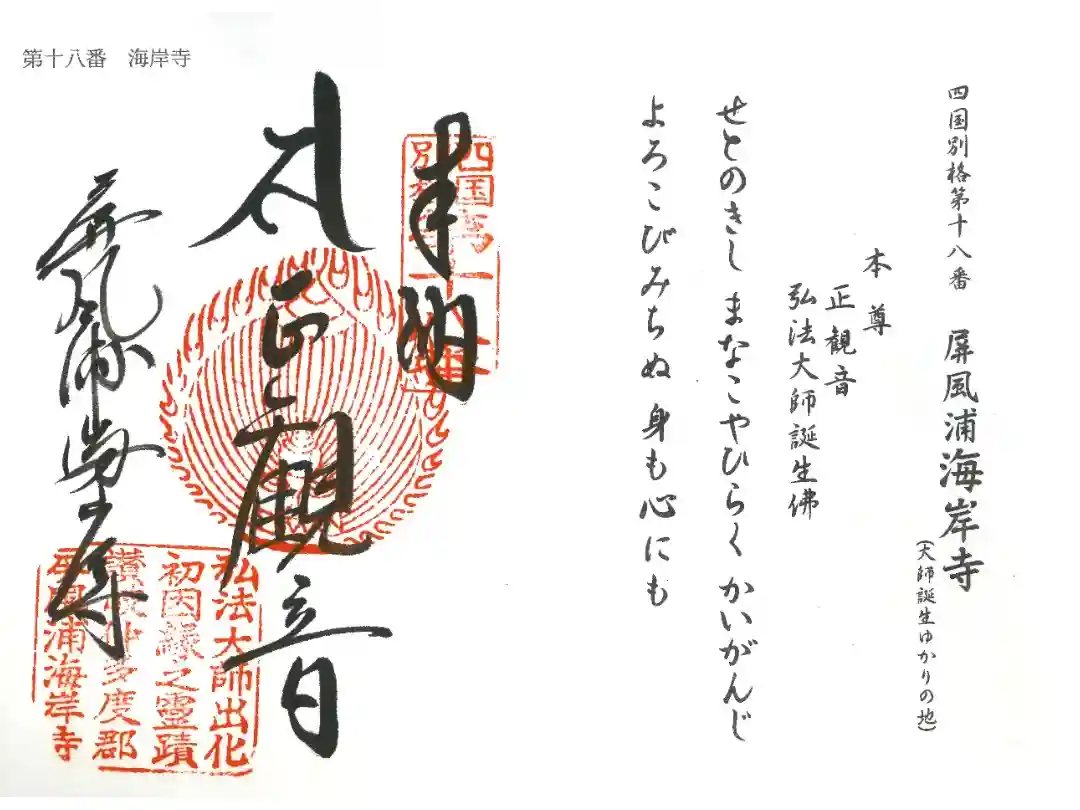 第十八番　海岸寺
四国別格第十八番　屏風浦海岸寺
(大師誕生ゆかりの地)
本尊
正観音
弘法大師誕生佛
せとのきし まなこやひらく かいがんじ
よろこびみちぬ 身も心にも
奉納
正観音
屏風浦海岸寺
弘法大師出化
初因縁之霊蹟
讃岐仲多度郡
屏風浦海岸寺